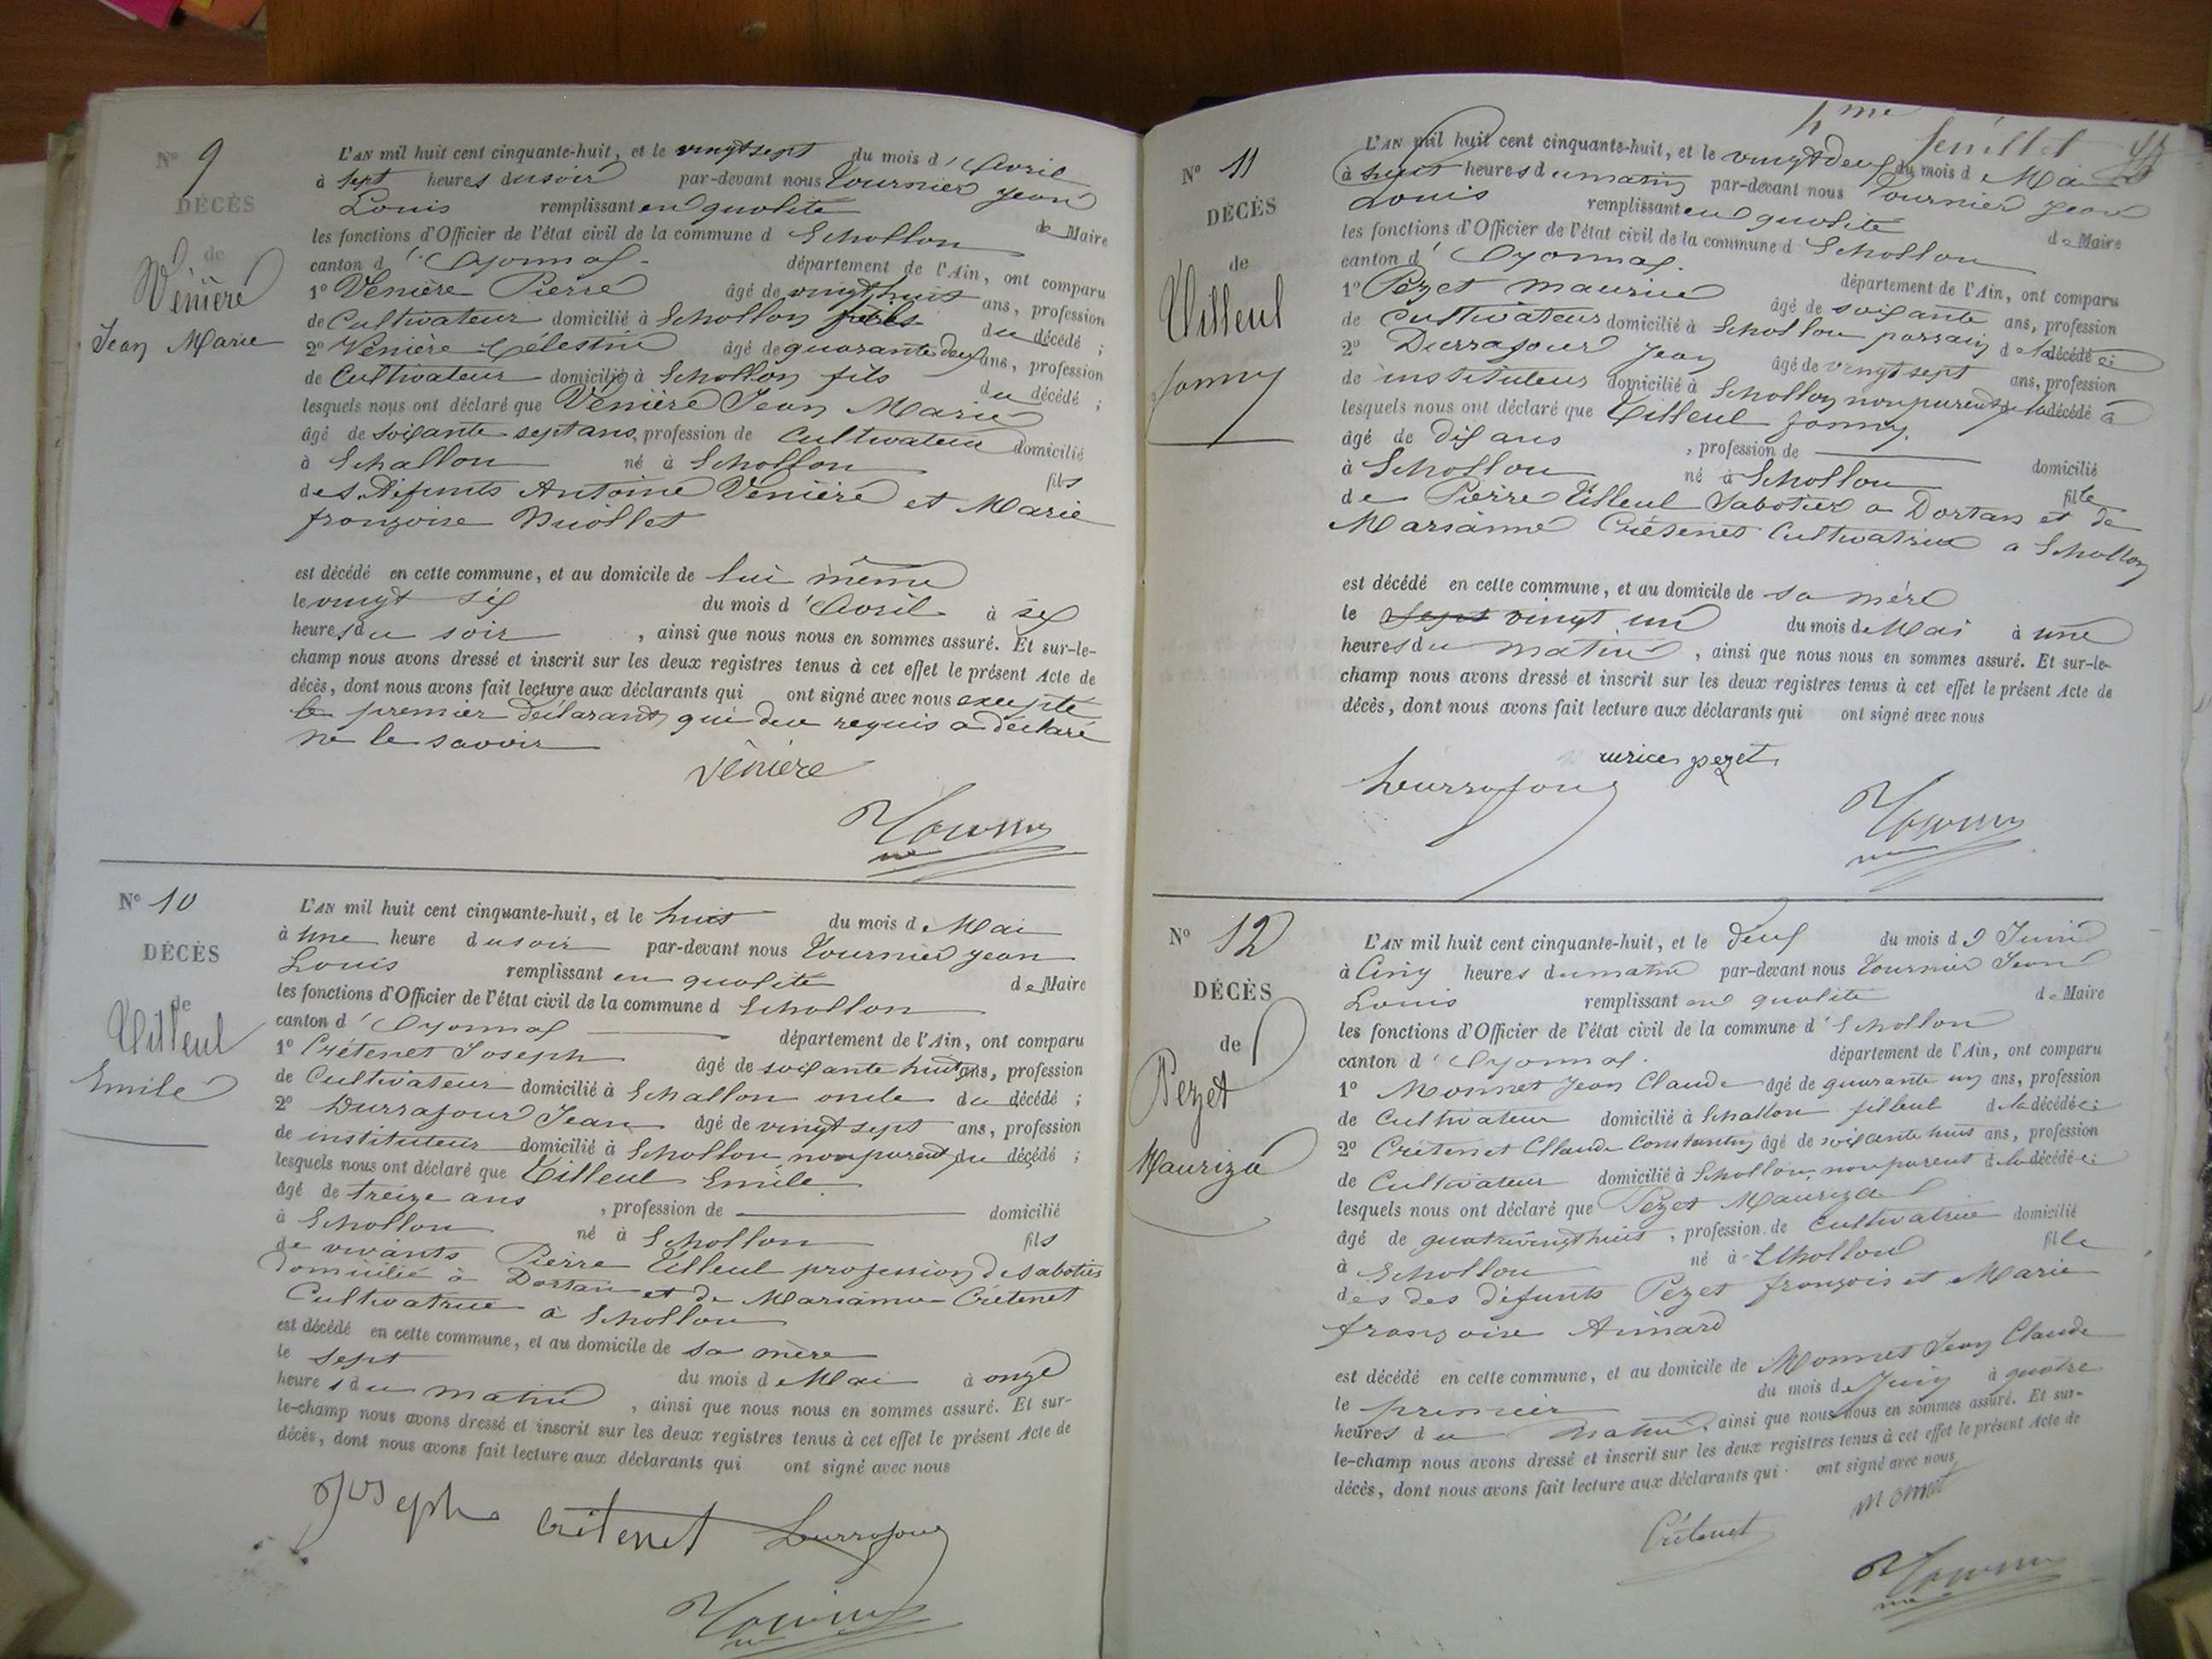 N° 9
DÉCÈS
de
Vénière
Jean Marie
L'AN mil huit cent cinquante-huit, et le vingt sept du mois d'Avril
à sept heures du soir par-devant nous Tournier Jean
Louis remplissant en qualité de Maire
les fonctions d'Officier de l'état civil de la commune d Echallon
canton d'Oyonnax département de l'Ain, ont comparu
1° Vénière Pierre âgé de vingt huit ans, profession
de Cultivateur domicilié à Echallon du décédé ;
2° Vénière Célestin âgé de quarante deux ans, profession
de Cultivateur domicilié à Echallon fils du décédé ;
lesquels nous ont déclaré que Vénière Jean Marie
âgé de soixante sept ans, profession de Cultivateur domicilié
à Echallon né à Echallon fils
des défunts Antoine Vénière et Marie
françoise Niollet
est décédé en cette commune, et au domicile de lui même
le vingt six du mois d'Avril à six
heures du soir , ainsi que nous nous en sommes assuré. Et sur-le-
champ nous avons dressé et inscrit sur les deux registres tenus à cet effet le présent Acte de
décès, dont nous avons fait lecture aux déclarants qui ont signé avec nous excepté
le premier déclarant qui de ce requis a déclaré
ne le savoir
Vénière
N° 10
DÉCÈS
de
Tilleul
Emile
L'AN mil huit cent cinquante-huit, et le huit du mois de Mai
à une heure du soir par-devant nous Tournier Jean
Louis remplissant en qualité de Maire
les fonctions d'Officier de l'état civil de la commune d Echallon
canton d'Oyonnax département de l'Ain, ont comparu
1° Crétenet Joseph âgé de soixante huit ans, profession
de Cultivateur domicilié à Echallon oncle du décédé ;
2° Durrafour Jean âgé de vingt sept ans, profession
de instituteur domicilié à Echallon non parent du décédé ;
lesquels nous ont déclaré que Tilleul Emile
âgé de treize ans , profession de domicilié
à Echallon né à Echallon fils
de vivants Pierre Tilleul profession de sabotier
domicilié à Dortan et de Marianne Crétenet
Cultivatrice à Echallon
est décédé en cette commune, et au domicile de sa mère
le sept du mois de Mai à onze
heures du matin , ainsi que nous nous en sommes assuré. Et sur-
le-champ nous avons dressé et inscrit sur les deux registres tenus à cet effet le présent Acte de
décès, dont nous avons fait lecture aux déclarants qui ont signé avec nous
Joseph Crétenet Durrafour
5me feuillet
N° 11
DÉCÈS
de
Tilleul
fanny
L'AN mil huit cent cinquante-huit, et le vingt deux du mois d Mai
à huit heures du matin par-devant nous Tournier Jean
Louis remplissant en qualité de Maire
les fonctions d'Officier de l'état civil de la commune d Echallon
canton d'Oyonnax. département de l'Ain, ont comparu
1° Pezet Maurice âgé de soixante ans, profession
de cultivateur domicilié à Echallon parrain de la décédée ;
2° Durrafour Jean âgé de vingt sept ans, profession
de instituteur domicilié à Echallon non parent de la décédée
lesquels nous ont déclaré que Tilleul fanny.
âgé de dix ans , profession de domicilié
à Echallon né à Echallon fille
de Pierre Tilleul Sabotier a Dortan et de
Marianne Crétenet Cultivatrice a Echallon
est décédé en cette commune, et au domicile de sa mère
le sept vingt un du mois de Mai à une
heures du matin , ainsi que nous nous en sommes assuré. Et sur-le-
champ nous avons dressé et inscrit sur les deux registres tenus à cet effet le présent Acte de
décès, dont nous avons fait lecture aux déclarants qui ont signé avec nous
urice pezet
Durrafour
N° 12
DÉCÈS
de
Pezet
Mauriza
L'AN mil huit cent cinquante-huit, et le deux du mois de Juin
à Cinq heures du matin par-devant nous Tournier Jean
Louis remplissant en qualité de Maire
les fonctions d'Officier de l'état civil de la commune d'Echallon
canton d'Oyonnax. département de l'Ain, ont comparu
1° Monnet Jean Claude âgé de quarante un ans, profession
de Cultivateur domicilié à Echallon filleul de la décédée ;
2° Crétenet Claude Constantin âgé de soixante huit ans, profession
de Cultivateur domicilié à Echallon non parent de la décédée ;
lesquels nous ont déclaré que Pezet Mauriza
âgé de quatre vingt huit , profession de Cultivatrice domicilié
à Echallon né à Echallon fille
des des défunts Pezet françois et Marie
françoise Aimard
est décédé en cette commune, et au domicile de Monnet Jean Claude
le premier du mois de Juin à quatre
heures du matin , ainsi que nous nous en sommes assuré. Et sur-
le-champ nous avons dressé et inscrit sur les deux registres tenus à cet effet le présent Acte de
décès, dont nous avons fait lecture aux déclarants qui ont signé avec nous
Monnet
Crétenet